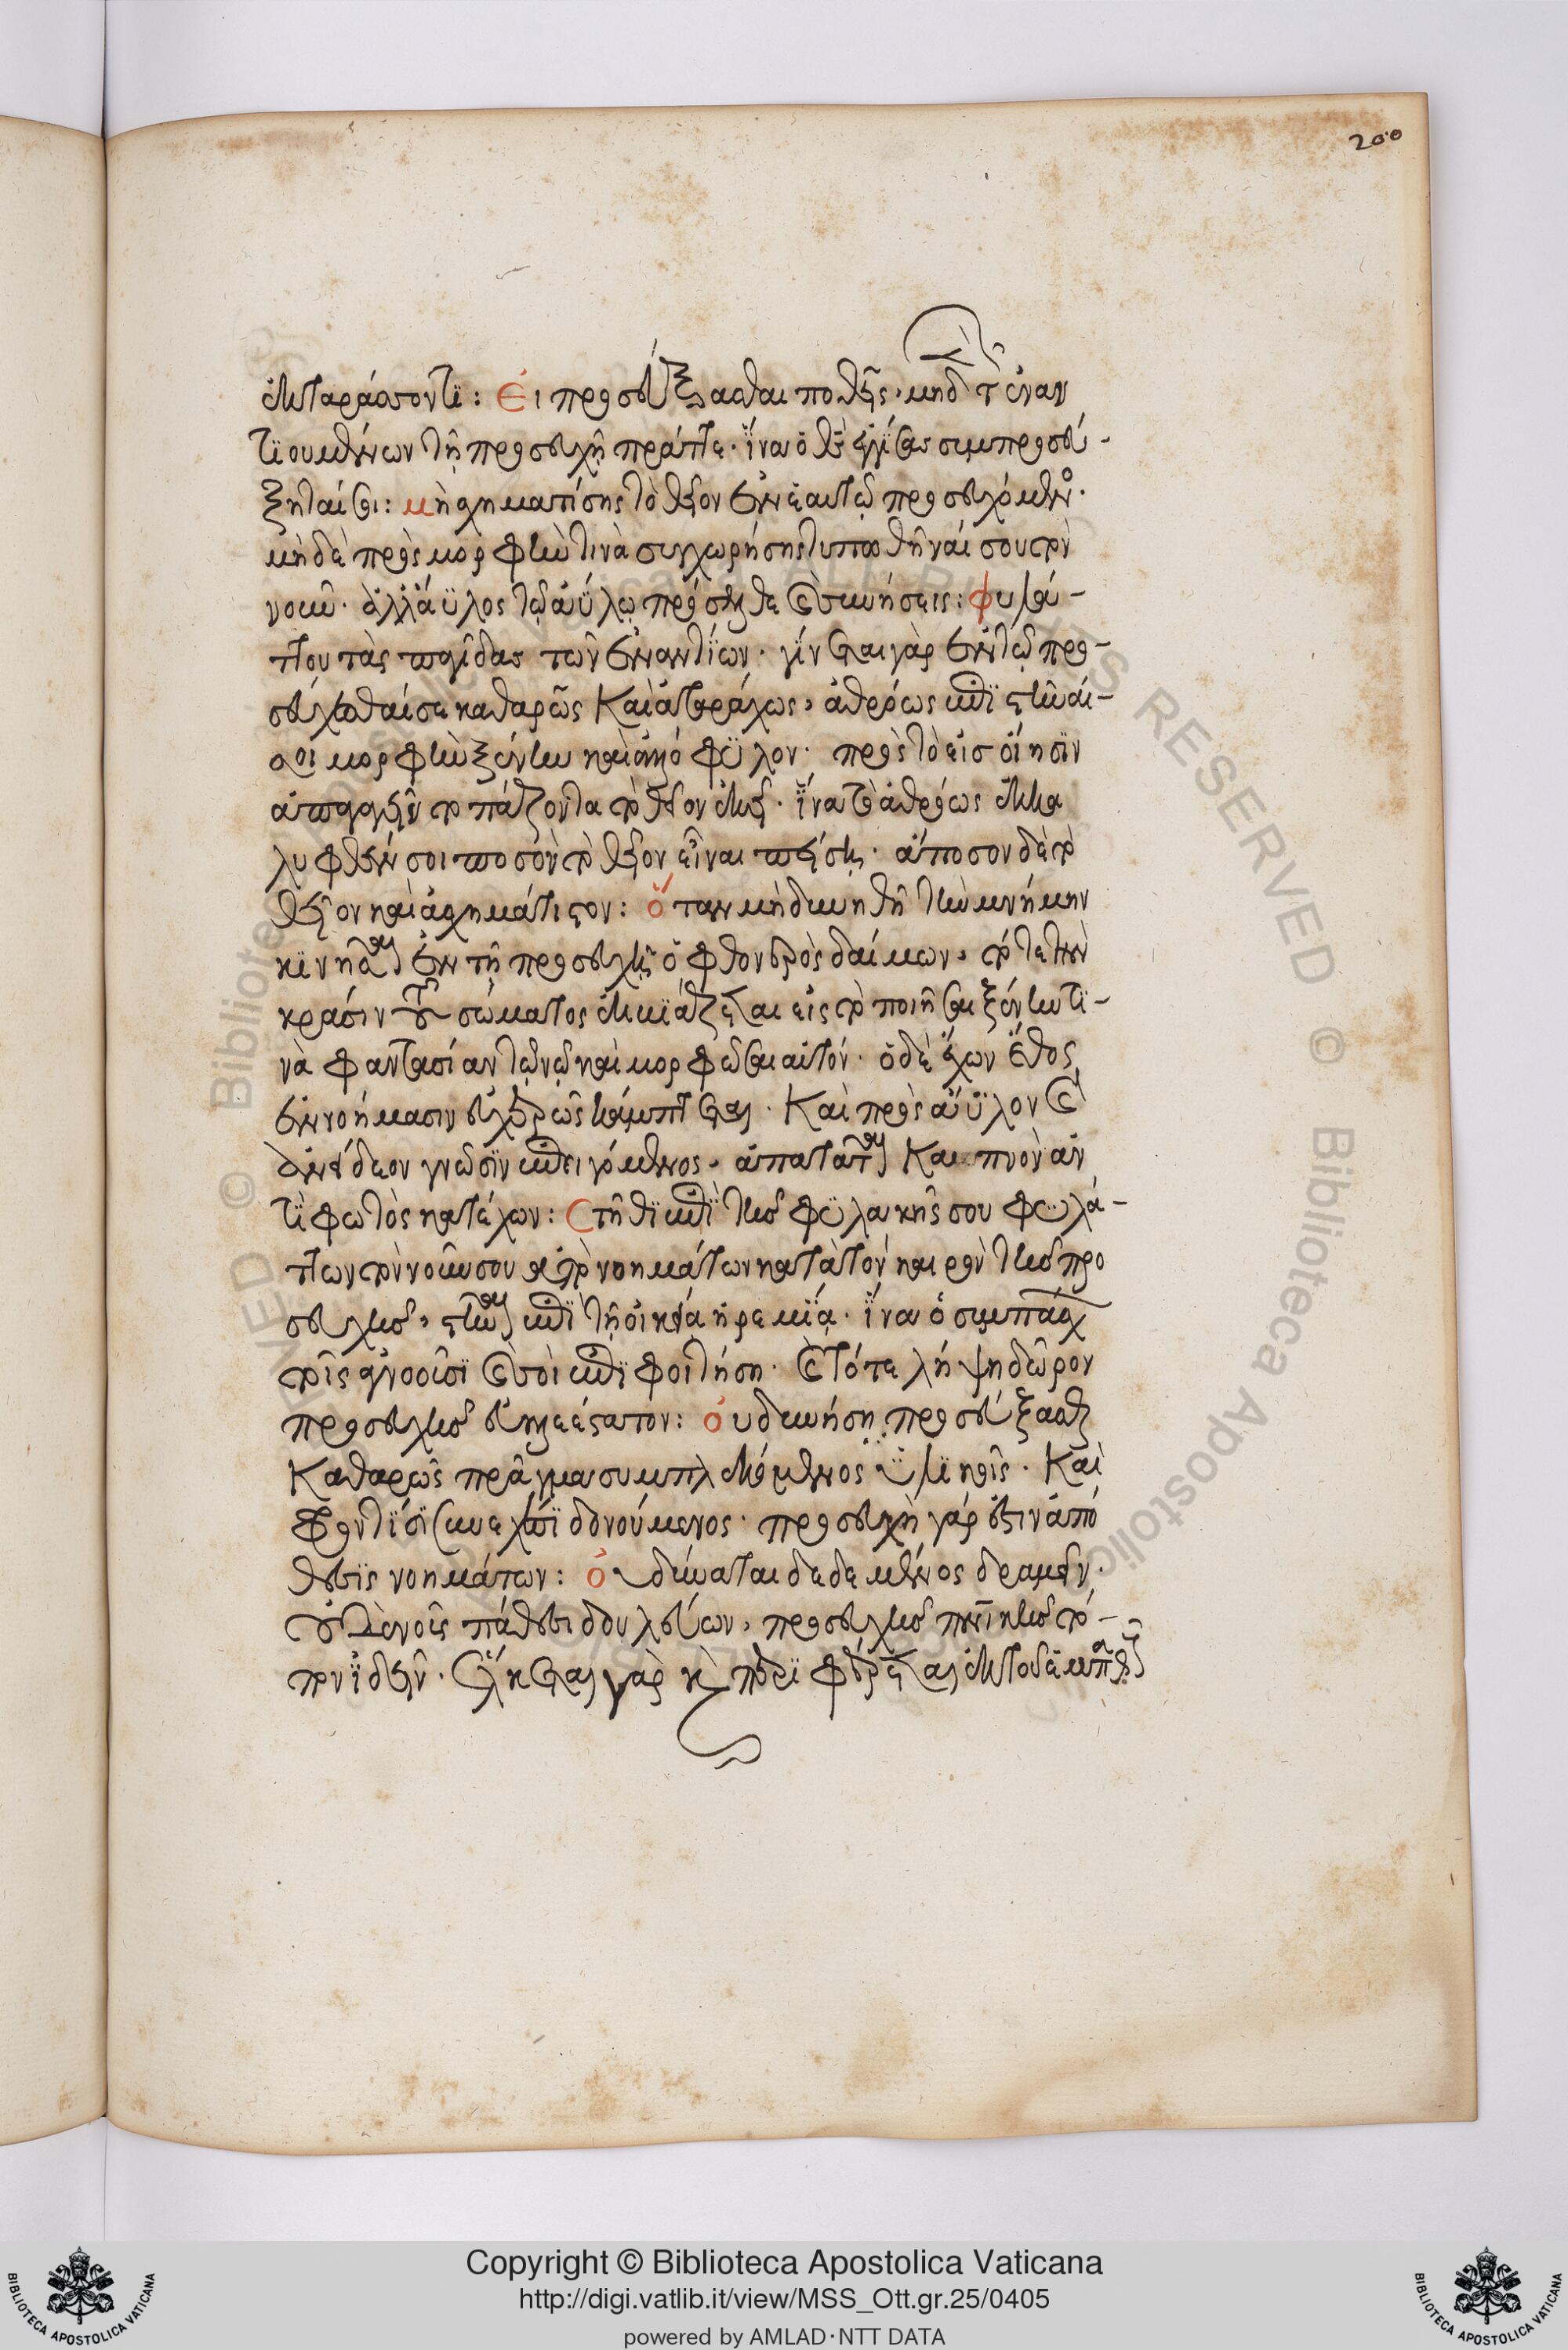 200
ἐκταράσσοντι: Εἰ προσεύξασθαι ποθεῖς, μηδὲν τῶν ἐναν
τιουμένων τῇ προσευχῇ πρᾶττε. ἵνα ὁ θεὸς ἐγγίσας συμπροσεύ-
ξηταί σοι: μὴ σχηματίσῃς τὸ θεῖον ἐν ἑαυτῷ προσευχόμενος.
μηδὲ πρὸς μορφὴν τινὰ συγχωρήσῃς τυπωθῆναί σου τὸν
νοῦν. ἀλλὰ ἄϋλος τῷ ἀΰλῳ πρόσελθε καὶ συνήσεις: φυλάτ-
του τὰς παγίδας τῶν ἐναντίων. γίνεται γὰρ ἐν τῷ προ-
σεύχεσθαί σε καθαρῶς καὶ ἀταράχως, ἀθρόως ἐπιστῆναί-
σοι μορφὴν ξένην καὶ ἀλλόφυλον. πρὸς τὸ εἰς οἴησιν
ἀπαγαγεῖν τοπάζοντα τὸ θεῖον ἐκεῖ. ἵνα τὸ ἀθρόως ἐκκα
λυφθέν σοι ποσὸν τὸ θεῖον εἶναι πείσῃ. ἄποσον δὲ τὸ
θεῖον καὶ ἀσχημάτιστον: ὅταν μὴ δυνηθῇ τὴν μνήμην
κινῆσαι ἐν τῇ προσευχῇ ὁ φθονερὸς δαίμων, τότε τὴν
κρᾶσιν τοῦ σώματος ἐκβιάζεται εἰς τὸ ποιῆσαι ξένην τι-
νὰ φαντασίαν τῷ νῷ καὶ μορφῶσαι αὐτόν. ὁ δὲ ἔχων ἔθος
ἐν νοήμασιν εὐχερῶς κάμπτεται. καὶ πρὸς ἄϋλον καὶ
ἀνείδεον γνῶσιν ἐπειγόμενος, ἀπατᾶται καπνὸν ἀν
τὶ φωτὸς κατέχων: Στῆθι ἐπὶ τῆς φυλακῆς σου φυλά-
ττων τὸν νοῦν σου ἀπὸ νοημάτων κατὰ τὸν καιρὸν τῆς προ
σευχῆς, στῆναι ἐπὶ τῇ οἰκείᾳ ἠρεμίᾳ. ἵνα ὁ συμπάσχων
τοῖς ἀγνοοῦσι καὶ σοὶ ἐπιφοιτήσῃ. καὶ τότε λήψῃ δῶρον
προσευχῆς εὐκλεέστατον: οὐ δυνήσῃ προσεύξασθαι
καθαρῶς πράγμασι συμπλεκόμενος ὑλικοῖς. καὶ
φροντίσι συνεχέσι δονούμενος. προσευχὴ γάρ ἐστιν ἀπό
θεσις νοημάτων: οὐ δύναται δεδεμένος δραμεῖν.
οὐδὲ νοῦς πάθεσι δουλεύων, προσευχῆς πνευματικῆς τό-
πον ἰδεῖν. ἕλκεται γὰρ καὶ περιφέρεται ἐκ τοῦ ἐμπαθοῦς
Copyright © Biblioteca Apostolica Vaticana
http://digi.vatlib.it/view/MSS_Ott.gr.25/0405
powered by AMLAD·NTT DATA